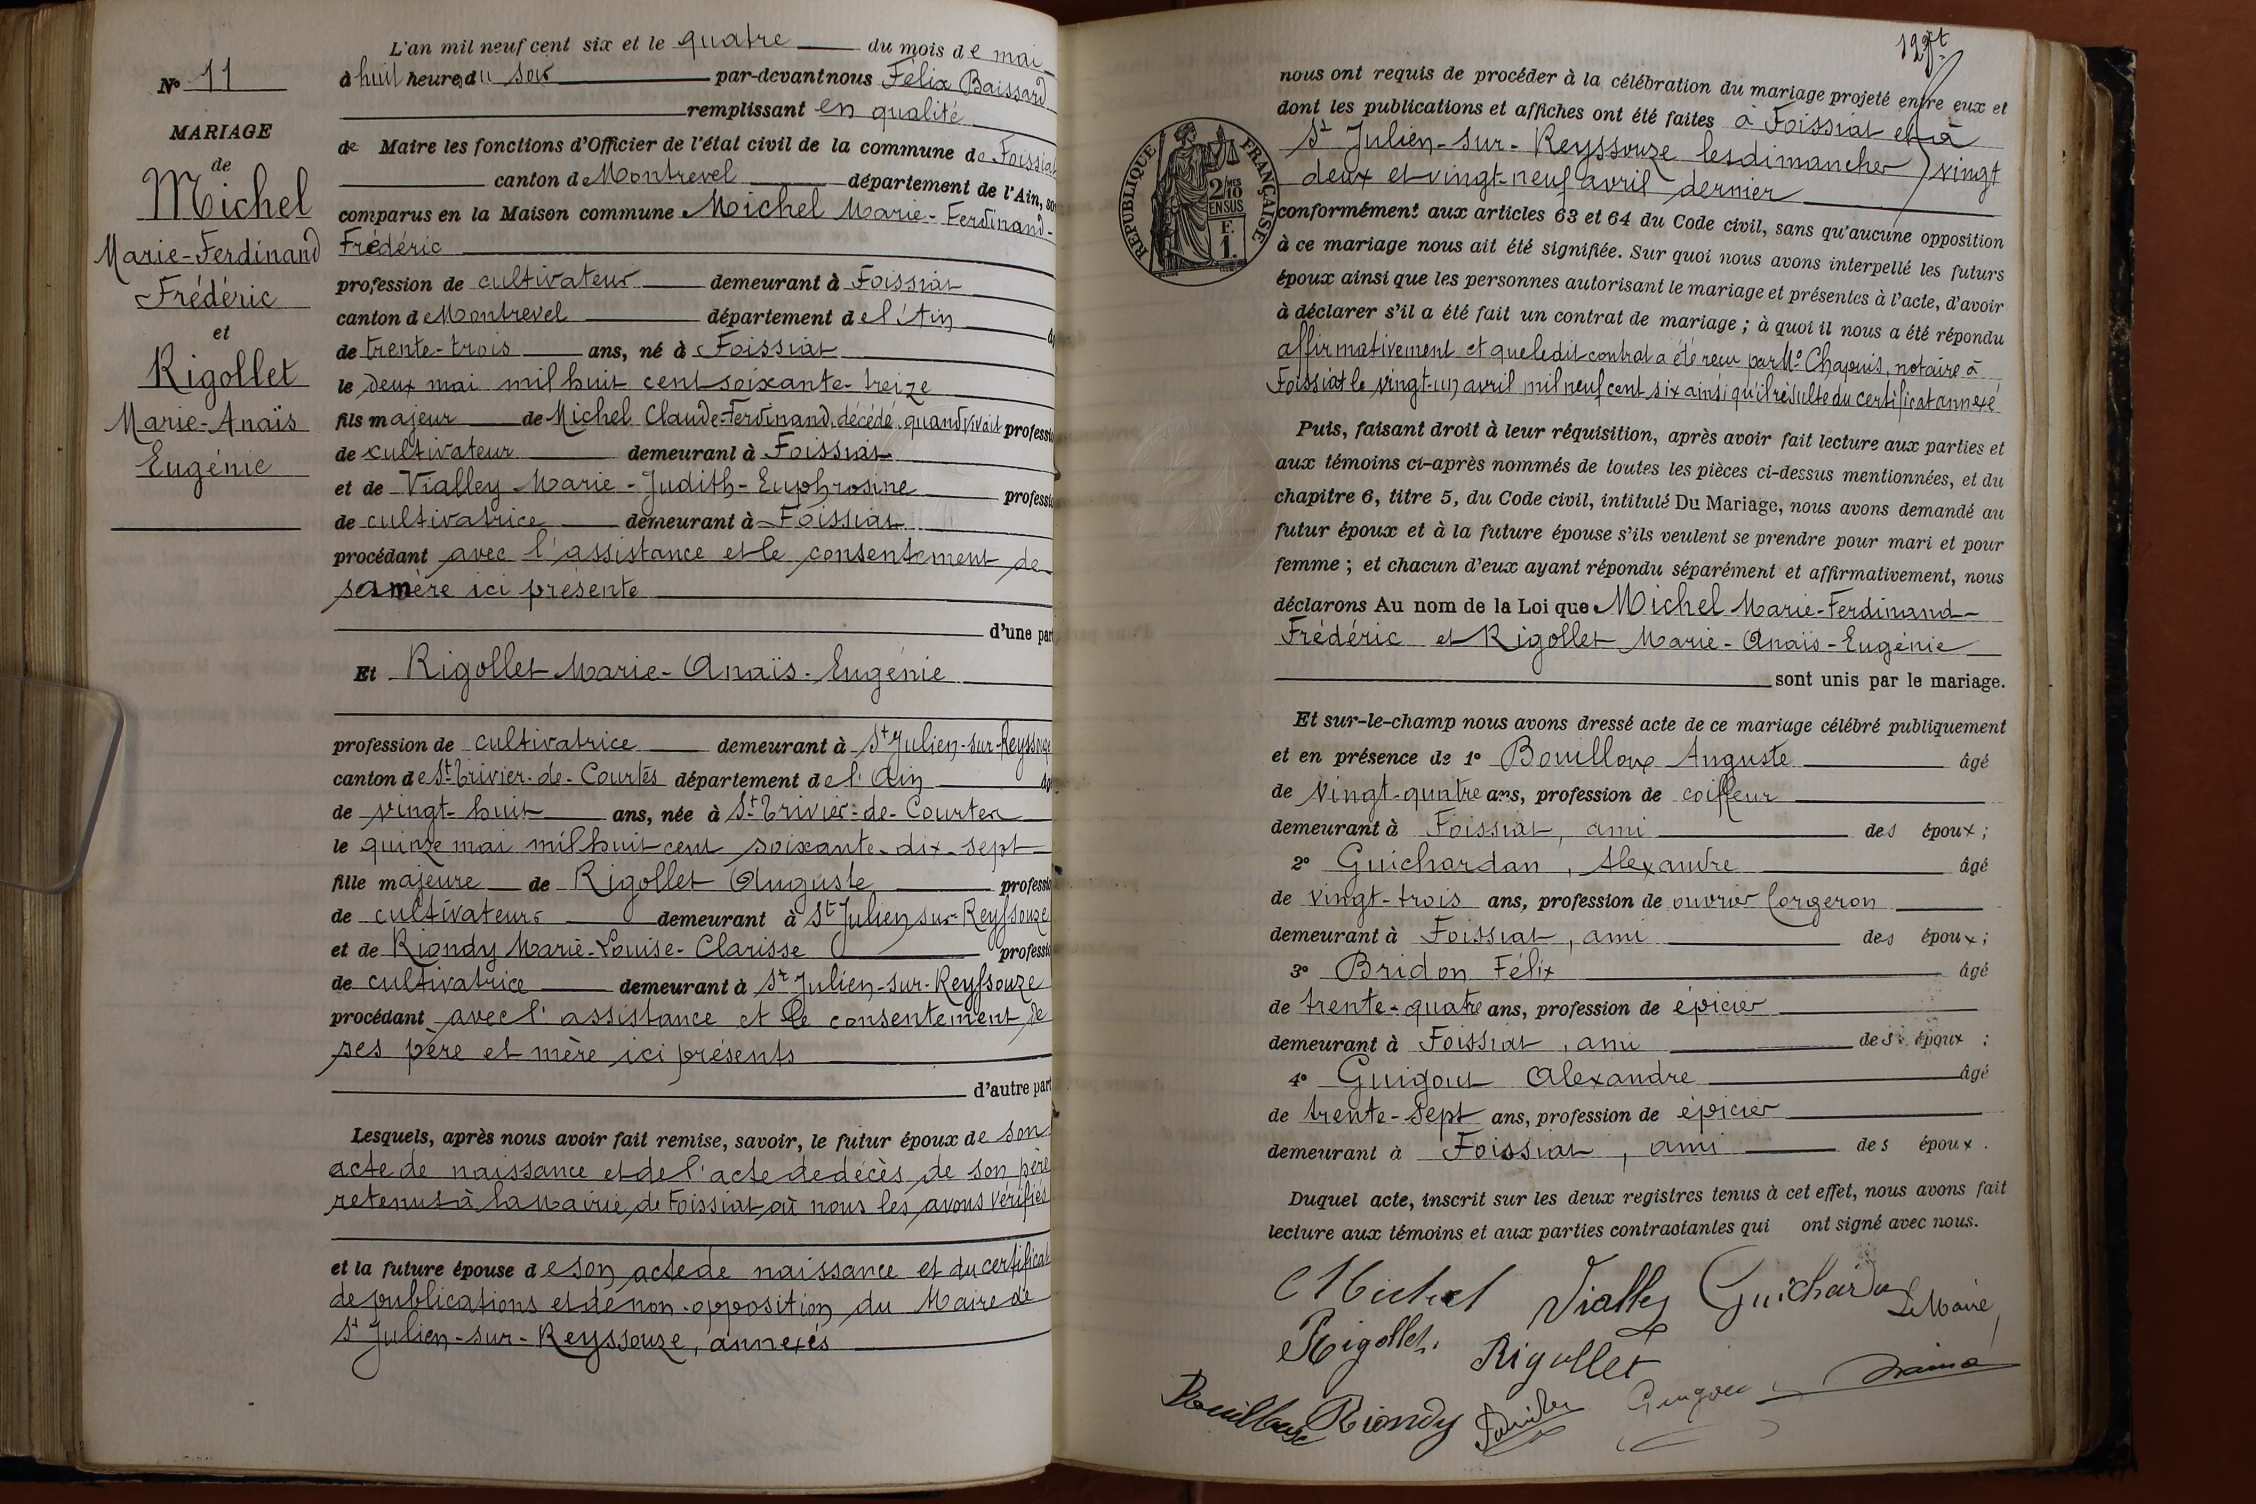 N° 11
MARIAGE
de
Michel
Marie-Ferdinand
Frédéric
et
Rigollet
Marie-Anaïs
Eugénie
L'an mil neuf cent six et le quatre du mois de mai
à huit heures du soir par-devant nous Félix Baissard
remplissant en qualité
de Maire les fonctions d'Officier de l'état civil de la commune de Foissiat
canton de Montrevel département de l'Ain, so
comparus en la Maison commune Michel Marie-Ferdinand-
Frédéric
profession de cultivateur demeurant à Foissiat
canton de Montrevel département de l'Ain âg
de trente-trois ans, né à Foissiat
le deux mai mil huit cent soixante-treize
fils majeur de Michel Claude-Ferdinand, décédé, quand vivait professi
de cultivateur demeurant à Foissiat
et de Vialley Marie-Judith-Euphrosine professi
de cultivatrice demeurant à Foissiat
procédant avec l'assistance et le consentement de
sa mère ici présente
d'une par
Et Rigollet Marie-Anaïs-Eugénie
profession de cultivatrice demeurant à St Julien-sur-Reyssouze
canton de St-Trivier-de-Courtes département de l'Ain âgé
de vingt-huit ans, née à St-Trivier-de-Courtes
le quinze mai mil huit cent soixante-dix-sept
fille majeure de Rigollet Auguste professio
de cultivateur demeurant à St Julien sur Reyssouze
et de Riondy Marie-Louise-Clarisse professio
de cultivatrice demeurant à St Julien-sur-Reyssouze
procédant avec l'assistance et le consentement de
ses père et mère ici présents
d'autre part
Lesquels, après nous avoir fait remise, savoir, le futur époux de son
acte de naissance et de l'acte de décès de son père
retenus à la Mairie de Foissiat où nous les avons vérifiés
et la future épouse de son acte de naissance et du certificat
de publications et de non-opposition du Maire de
St Julien-sur-Reyssouze, annexés
nous ont requis de procéder à la célébration du mariage projeté entre eux et
dont les publications et affiches ont été faites à Foissiat et à
St Julien-sur-Reyssouze les dimanches vingt
deux et vingt-neuf avril dernier
RÉPUBLIQUE FRANÇAISE
2/10 MES
EN SUS
1 F.
conformément aux articles 63 et 64 du Code civil, sans qu'aucune opposition
à ce mariage nous ait été signifiée. Sur quoi nous avons interpellé les futurs
époux ainsi que les personnes autorisant le mariage et présentes à l'acte, d'avoir
à déclarer s'il a été fait un contrat de mariage ; à quoi il nous a été répondu
affirmativement et que ledit contrat a été reçu par Me Chapuis, notaire à
Foissiat le vingt-un avril mil neuf cent six ainsi qu'il résulte du certificat annexé
Puis, faisant droit à leur réquisition, après avoir fait lecture aux parties et
aux témoins ci-après nommés de toutes les pièces ci-dessus mentionnées, et du
chapitre 6, titre 5, du Code civil, intitulé Du Mariage, nous avons demandé au
futur époux et à la future épouse s'ils veulent se prendre pour mari et pour
femme ; et chacun d'eux ayant répondu séparément et affirmativement, nous
déclarons Au nom de la Loi que Michel Marie-Ferdinand-
Frédéric et Rigollet Marie-Anaïs-Eugénie
sont unis par le mariage.
Et sur-le-champ nous avons dressé acte de ce mariage célébré publiquement
et en présence de 1° Bouilloux Auguste âgé
de vingt-quatre ans, profession de coiffeur
demeurant à Foissiat, ami des époux ;
2° Guichardan, Alexandre âgé
de vingt-trois ans, profession de ouvrier forgeron
demeurant à Foissiat, ami des époux ;
3° Bridon Félix âgé
de trente-quatre ans, profession de épicier
demeurant à Foissiat, ami des époux ;
4° Guigout Alexandre âgé
de trente-sept ans, profession de épicier
demeurant à Foissiat, ami des époux.
Duquel acte, inscrit sur les deux registres tenus à cet effet, nous avons fait
lecture aux témoins et aux parties contractantes qui ont signé avec nous.
Michel Vialley Guichardan Le Maire,
Rigollet Rigollet
Bouilloux Riondy